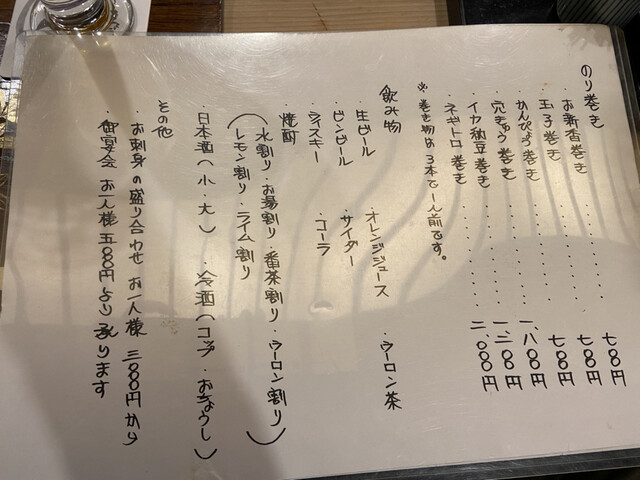 のり巻き
・お新香巻き........七〇〇円
・玉子巻き........七〇〇円
・かんぴょう巻き........七〇〇円
・穴きゅう巻き........一、八〇〇円
・イカ納豆巻き........一、三〇〇円
・ネギトロ巻き........二、〇〇〇円
※巻き物は3本で一人前です。
飲み物
・生ビール ・オレンジジュース ・ウーロン茶
・ビンビール ・サイダー
・ウイスキー ・コーラ
・焼酎
(水割り・お湯割り・番茶割り・ウーロン割り
レモン割り・ライム割り)
・日本酒(小・大) ・冷酒(コップ・おちょうし)
その他
・お刺身の盛り合わせ お一人様 三〇〇〇円から
・御宴会 お一人様五〇〇〇円より承ります